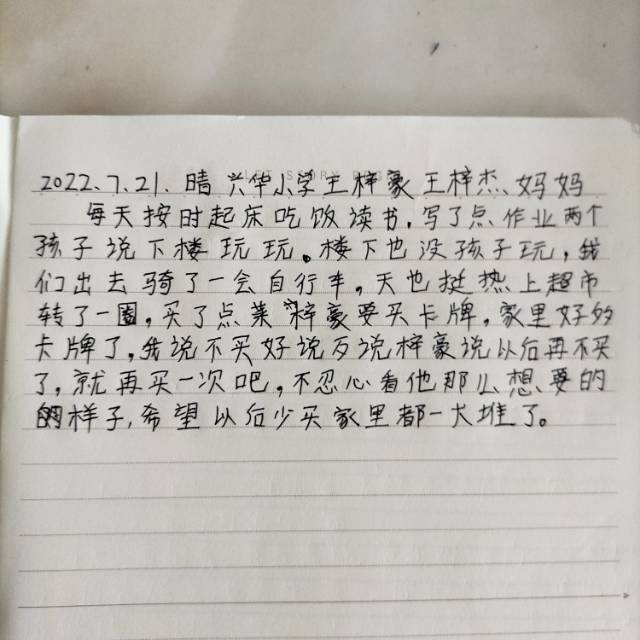 2022.7.21.晴 兴华小学王梓豪 王梓杰、妈妈
每天按时起床吃饭读书,写了点作业两个
孩子说下楼玩玩。楼下也没孩子玩,我
们出去骑了一会自行车,天也挺热上超市
转了一圈,买了点菜梓豪要买卡牌,家里好多
卡牌了,我说不买好说歹说梓豪说以后再不买
了,就再买一次吧,不忍心看他那么想要的
的样子,希望以后少买家里都一大堆了。